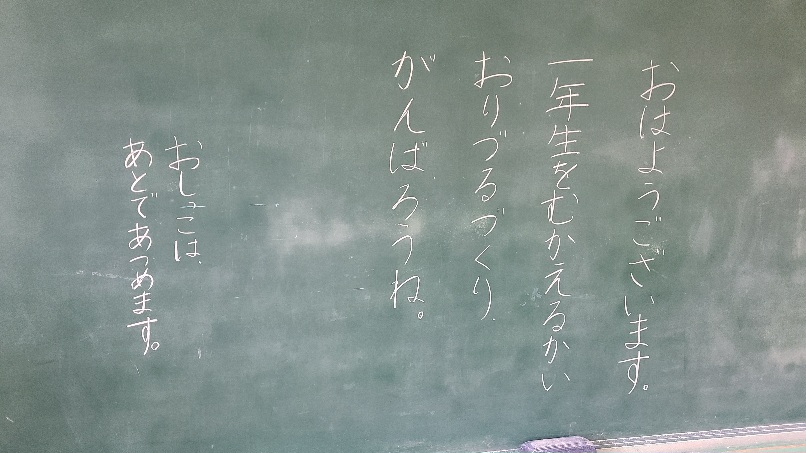 おはようございます。
一年生をむかえるかい
おりづるづくり、
がんばろうね。
おしっこは、
あとであつめます。